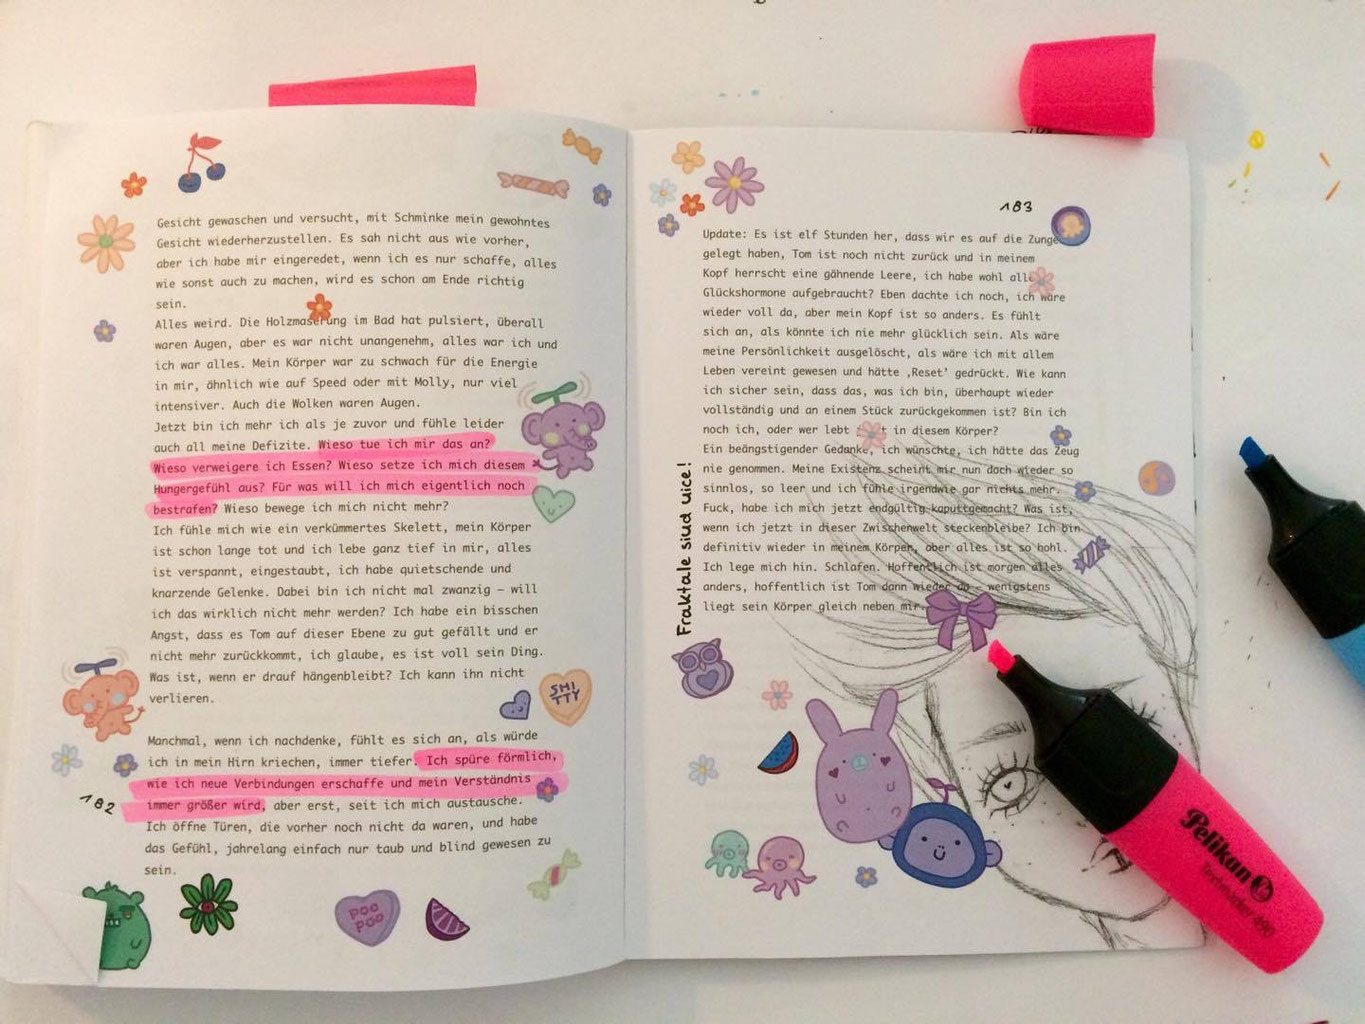 Gesicht gewaschen und versucht, mit Schminke mein gewohntes
Gesicht wiederherzustellen. Es sah nicht aus wie vorher,
aber ich habe mir eingeredet, wenn ich es nur schaffe, alles
wie sonst auch zu machen, wird es schon am Ende richtig
sein.
Alles weird. Die Holzmaserung im Bad hat pulsiert, überall
waren Augen, aber es war nicht unangenehm, alles war ich und
ich war alles. Mein Körper war zu schwach für die Energie
in mir, ähnlich wie auf Speed oder mit Molly, nur viel
intensiver. Auch die Wolken waren Augen.
Jetzt bin ich mehr ich als je zuvor und fühle leider
auch all meine Defizite. Wieso tue ich mir das an?
Wieso verweigere ich Essen? Wieso setze ich mich diesem
Hungergefühl aus? Für was will ich mich eigentlich noch
bestrafen? Wieso bewege ich mich nicht mehr?
Ich fühle mich wie ein verkümmertes Skelett, mein Körper
ist schon lange tot und ich lebe ganz tief in mir, alles
ist verspannt, eingestaubt, ich habe quietschende und
knarzende Gelenke. Dabei bin ich nicht mal zwanzig – will
ich das wirklich nicht mehr werden? Ich habe ein bisschen
Angst, dass es Tom auf dieser Ebene zu gut gefällt und er
nicht mehr zurückkommt, ich glaube, es ist voll sein Ding.
Was ist, wenn er drauf hängenbleibt? Ich kann ihn nicht
verlieren.
SHI
TTY
Manchmal, wenn ich nachdenke, fühlt es sich an, als würde
ich in mein Hirn kriechen, immer tiefer. Ich spüre förmlich,
wie ich neue Verbindungen erschaffe und mein Verständnis
immer größer wird, aber erst, seit ich mich austausche.
Ich öffne Türen, die vorher noch nicht da waren, und habe
das Gefühl, jahrelang einfach nur taub und blind gewesen zu
sein.
182
POO
POO
183
Update: Es ist elf Stunden her, dass wir es auf die Zunge
gelegt haben, Tom ist noch nicht zurück und in meinem
Kopf herrscht eine gähnende Leere, ich habe wohl alle
Glückshormone aufgebraucht? Eben dachte ich noch, ich wäre
wieder voll da, aber mein Kopf ist so anders. Es fühlt
sich an, als könnte ich nie mehr glücklich sein. Als wäre
meine Persönlichkeit ausgelöscht, als wäre ich mit allem
Leben vereint gewesen und hätte ‚Reset' gedrückt. Wie kann
ich sicher sein, dass das, was ich bin, überhaupt wieder
vollständig und an einem Stück zurückgekommen ist? Bin ich
noch ich, oder wer lebt jetzt in diesem Körper?
Ein beängstigender Gedanke, ich wünschte, ich hätte das Zeug
nie genommen. Meine Existenz scheint mir nun doch wieder so
sinnlos, so leer und ich fühle irgendwie gar nichts mehr.
Fuck, habe ich mich jetzt endgültig kaputtgemacht? Was ist,
wenn ich jetzt in dieser Zwischenwelt steckenbleibe? Ich bin
definitiv wieder in meinem Körper, aber alles ist so hohl.
Ich lege mich hin. Schlafen. Hoffentlich ist morgen alles
anders, hoffentlich ist Tom dann wieder da – wenigstens
liegt sein Körper gleich neben mir.
Fraktale sind nice!
Pelikan
Textmarker 490